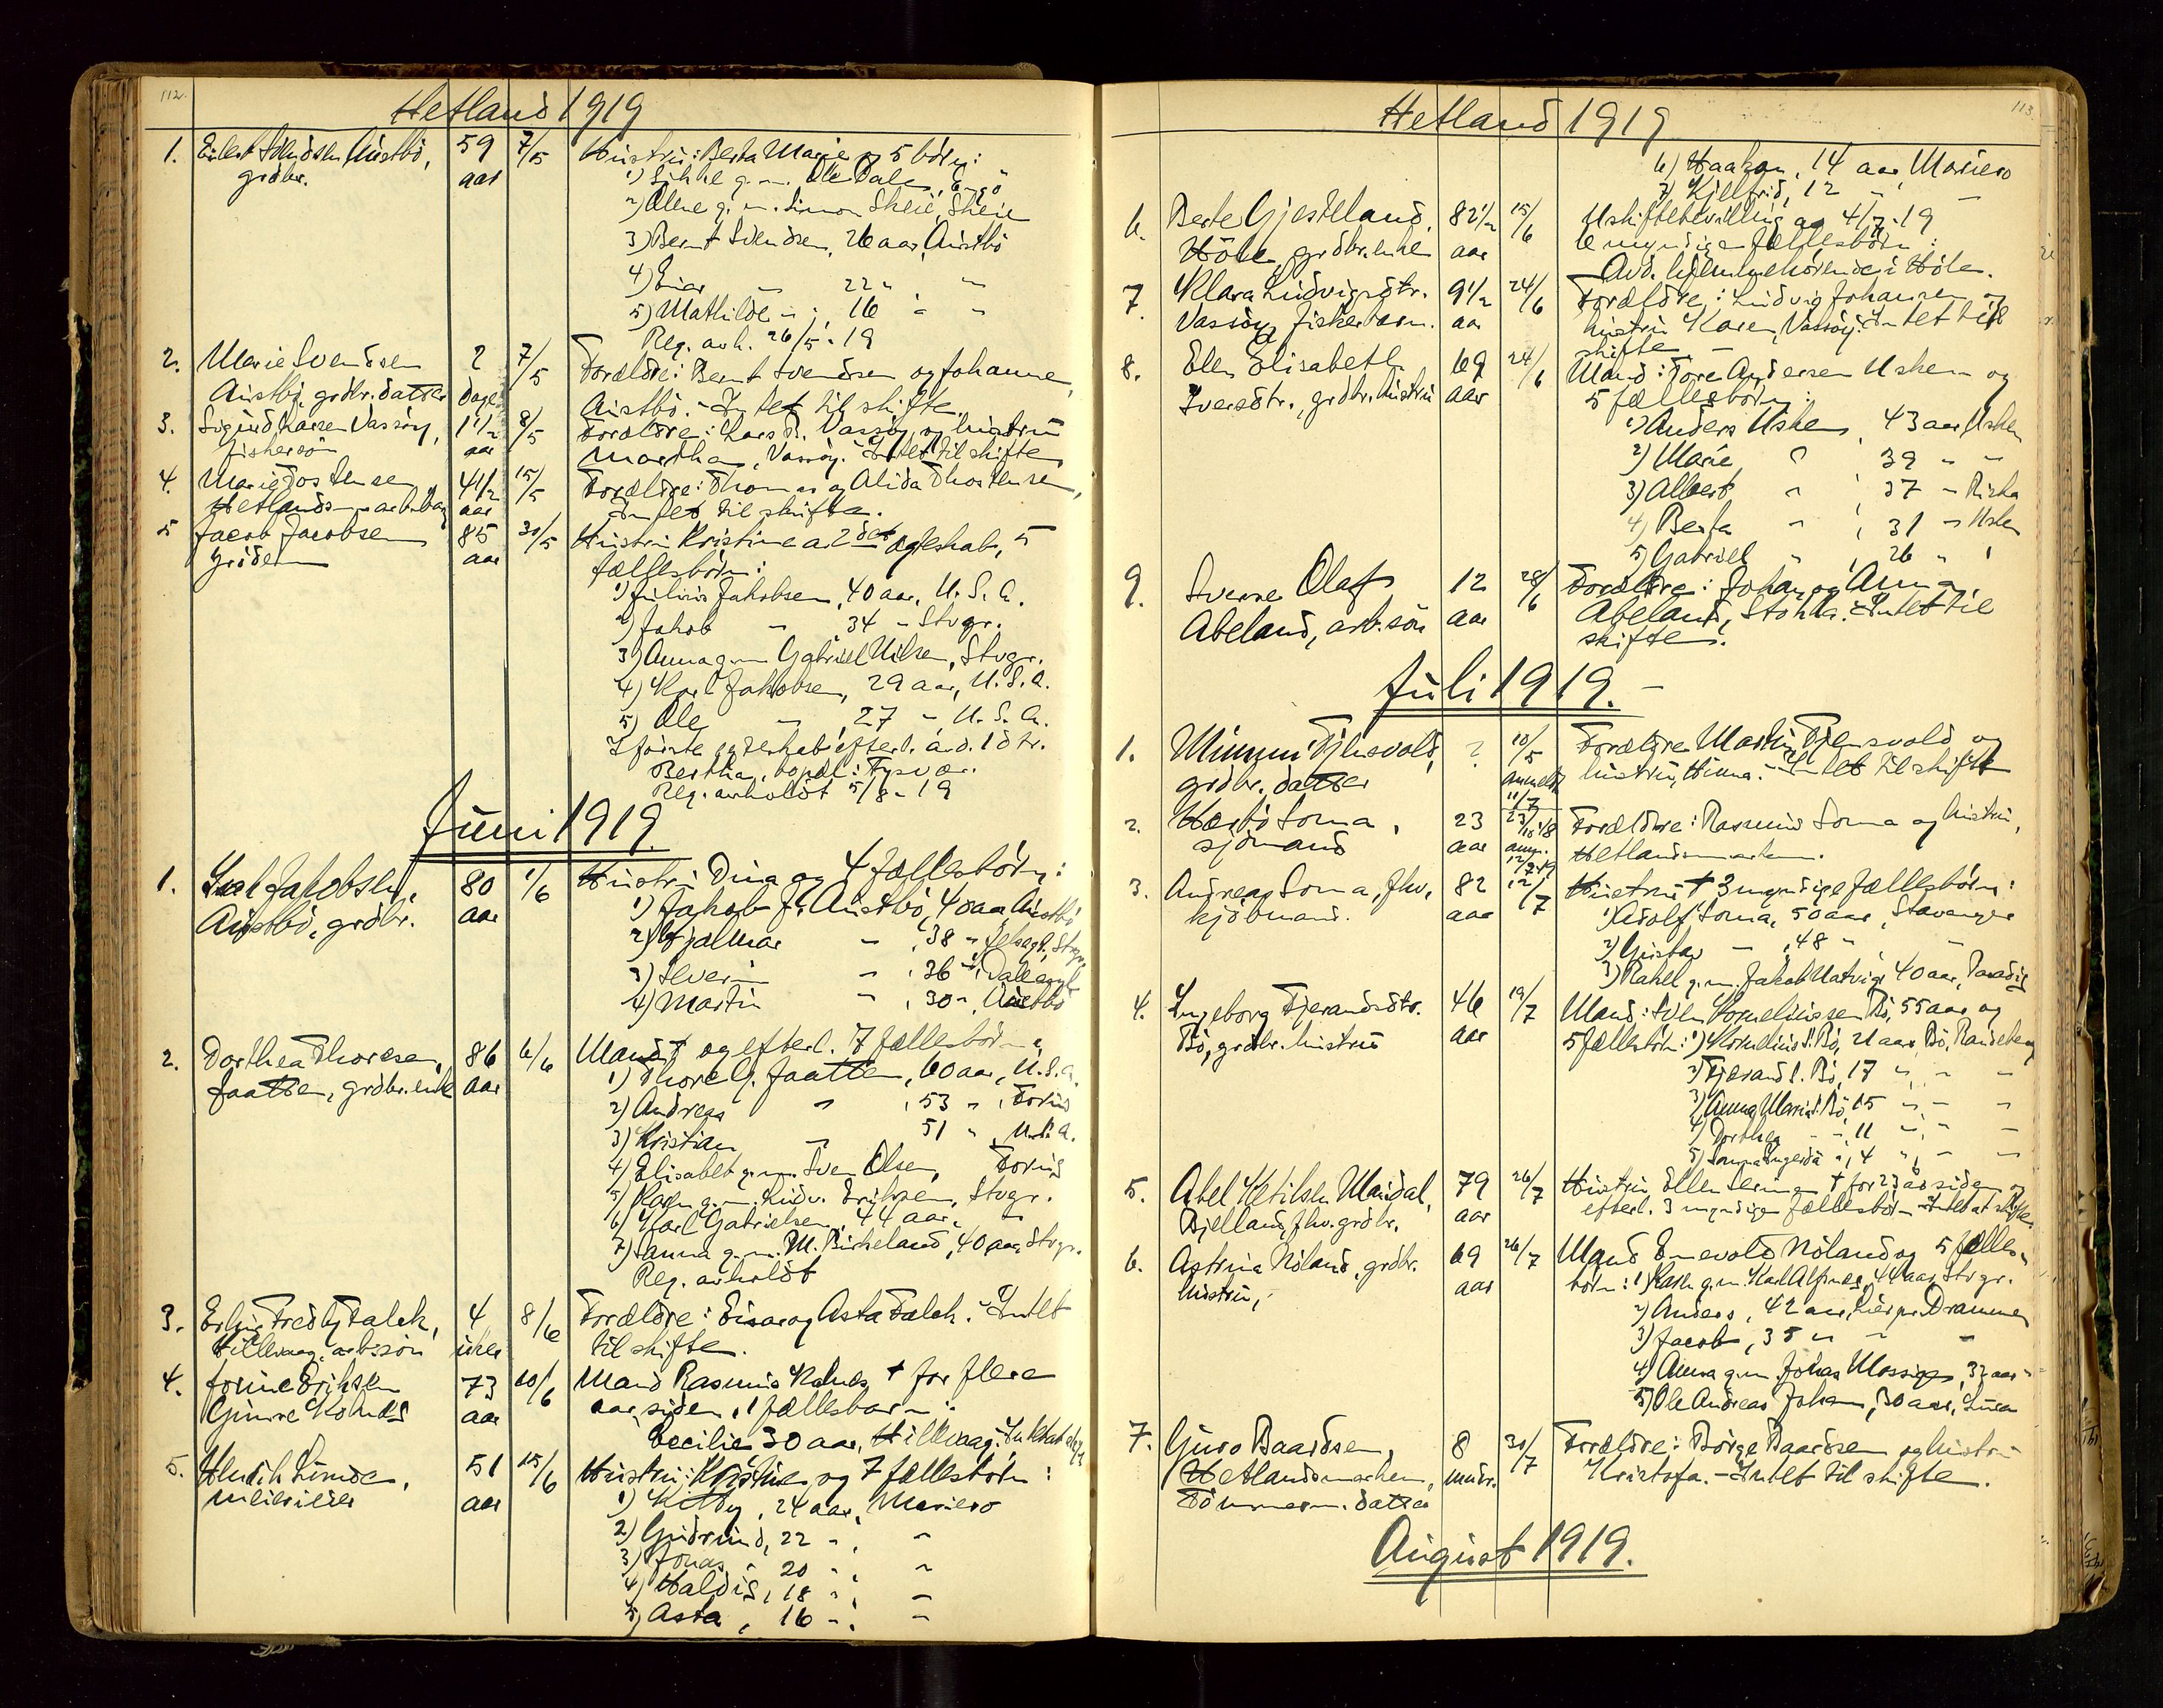 112.
Hetland 1919
1. Eilert Svendsen Austbö, 59 7/5 Hustru: Berta Marie og 5 börn:
grdbr. aar 1) Sikke g.m. Ole Dale, Engö
2) Oline g.m. Simon Skeie, Skeie
3) Bernt Svendsen, 26 aar, Austbö
4) Einar " 22 " "
5) Mathilde " , 16 " "
Reg. avh. 26/5 - 19
2. Marie Svendsen 2 7/5 Forældre: Bernt Svendsen og Johanne,
Austbö, grdbr. datter dage Austbö. - Intet til skifte.
3. Sigurd Larsen Vassöy, 1 1/2 8/5 Forældre: Lars S. Vassöy og hustru
fiskersön aar Martha, Vassöy. Intet til skifte
4. Marie Tostensen 4 1/2 15/5 Forældre: Thomas og Alida Thostensen,
Hetlandsm. aar Intet til skifte.
5 Jacob Jacobsen 85 30/5 Hustru Kristine av 2det egteskab, 5
Gröden aar fællesbörn:
1) Julius Jakobsen, 40 aar, U.S.A.
2) Jakob " 34 " Stvgr.
3) Anna g.m. Gabriel Nilsen, Stvgr.
4) Karl Jakobsen, 29 aar, U.S.A.
5) Ole " , 27 " , U.S.A.
I förste egteskab efterl. avd. 1 dtr.
Bertha, bopæl: Tysvær.
Reg. avholdt 5/8 - 19
Juni 1919.
1. Jakobsen, 80 1/6 Hustru Dina og 4 fællesbörn:
Austbö, grdbr. aar 1) Jakob J. Austbö, 40 aar Austbö
2) Hjalmar " , 38 " Stvgr.
3) Severin " , 36 "
4) Martin " , 30 " , Austbö
2. Dorthea Thoresen, 86 6/6 Mand † og efterl. 7 fællesbörn:
Jaatten, grdbr. enke aar 1) Thore G. Jaatten, 60 aar, U.S.A.
2) Andreas " , 53 " , Forus
3) Kristian " 51 " , U.S.A.
4) Elisabet g.m. Sven Olsen, Forus
5) Karen g.m. Ludv. Eriksen, Stvgr.
6) Karl Gabrielsen, 44 aar, "
7) Anna g.m. M. Birkeland, 40 aar, Stvgr.
Reg. avholdt
3. Fredtj Falck, 4 8/6 Forældre: Einar og Asta Falck. - Intet
Hillevaag, arb. sön uker til skifte.
4. Eriksen 73 10/6 Mand Rasmus † for flere
aar aar siden, 1 fællesbarn:
Cecilie 30 aar, Hillevaag.
5. Hendrik Lunde, 51 15/6 Hustru: Kristine og 7 fællesbörn:
meierieier aar 1) Kitty, 24 aar, Mariero
2) Gudrund, 22 " , "
3) Jonas " 20 " , "
4) Haldis, 18 " , "
5) Asta, 16 " , "
113.
Hetland 1919
6) Haakon, 14 aar, Mariero
7) Kjellfrid, 12 " "
6. Berte Gjesteland, 82 1/2 15/6 Uskiftebevilling av 4/7 - 19
Höle, grdbr. enke aar 6 myndige fællesbörn:
Avd. hjemmehörende i Höle.
7. Klara Ludvigsdtr. 9 1/2 24/6 Forældre: Ludvig Johansen og
Vassöy, fiskerbarn. aar hustru Karen, Vassöy. Intet til
skifte.
8. Elen Elisabeth 69 24/6 Mand: Tore Andersen Usken og
Iversdtr., grdbr. hustru aar 5 fællesbörn:
1) Anders Usken, 43 aar, Usken
2) Marie " 39 " "
3) Albert " , 37 " Riska
4) Berta " , 31 " Usken
5) Gabriel " , 26 " "
9. Sverre Olaf 12 28/6 Forældre: Johan og Anna
Abeland, arb. sön aar Abeland, Stokka. Intet til
skifte.
Juli 1919. -
1. ? 10/5 Forældre Martin og
grdbr. datter anmeldt hustru, Hinna. - Intet til skifte
11/7
2. Soma, 23 23/10 18 Forældre: Rasmus Soma og hustru,
sjömand aar anm. Hetlandsmarken.
12/7 - 19
3. Andreas Soma, fhv. 82 12/7 Hustru † 3 myndige fællesbörn:
kjöbmand. aar 1) Adolf Soma, 50 aar, Stavanger
2) Gustav " , 48 " , "
3) Rakel g.m. Jakob Hatvig 40 aar, Paradis
4. Ingeborg Tjerandsdtr. 46 19/7 Mand: Sven Korneliussen Bö, 55 aar og
Bö, grdbr. hustru aar 5 fællesbörn: 1) Kornelius S. Bö, 21 aar, Bö, Randeberg
2) Tjerand S. Bö, 17 " " "
3) Anna Marie S. Bö, 15 " " "
4) Dorthea " ", 11 " " "
5) ", 4 " " "
5. Abel Ketilsen Mandal, 79 26/7 Hustru Ellen † for 23 aar siden og
Bjelland, fhv. grdbr. aar efterl. 3 myndige fællesbörn. Intet at skifte.
6. Astrina Nöland, grdbr. 69 26/7 Mand Enevold Nöland og 5 fælles-
hustru, aar börn: 1) Karen g.m. Karl Alfsnes, 44 aar, Stvgr.
2) Anders, 42 aar Lier pr. Drammen
3) Jacob, 35 " " "
4) Anna g.m. Jonas Mossige, 32 aar "
5) Ole Andreas Johan, 30 aar, Lura
7. Guro Baardsen, 8 30/7 Forældre: Börge Baardsen og hustru
Hetlandsmarken, mndr. Kristofa. - Intet til skifte.
Tömmerm. datter
August 1919.